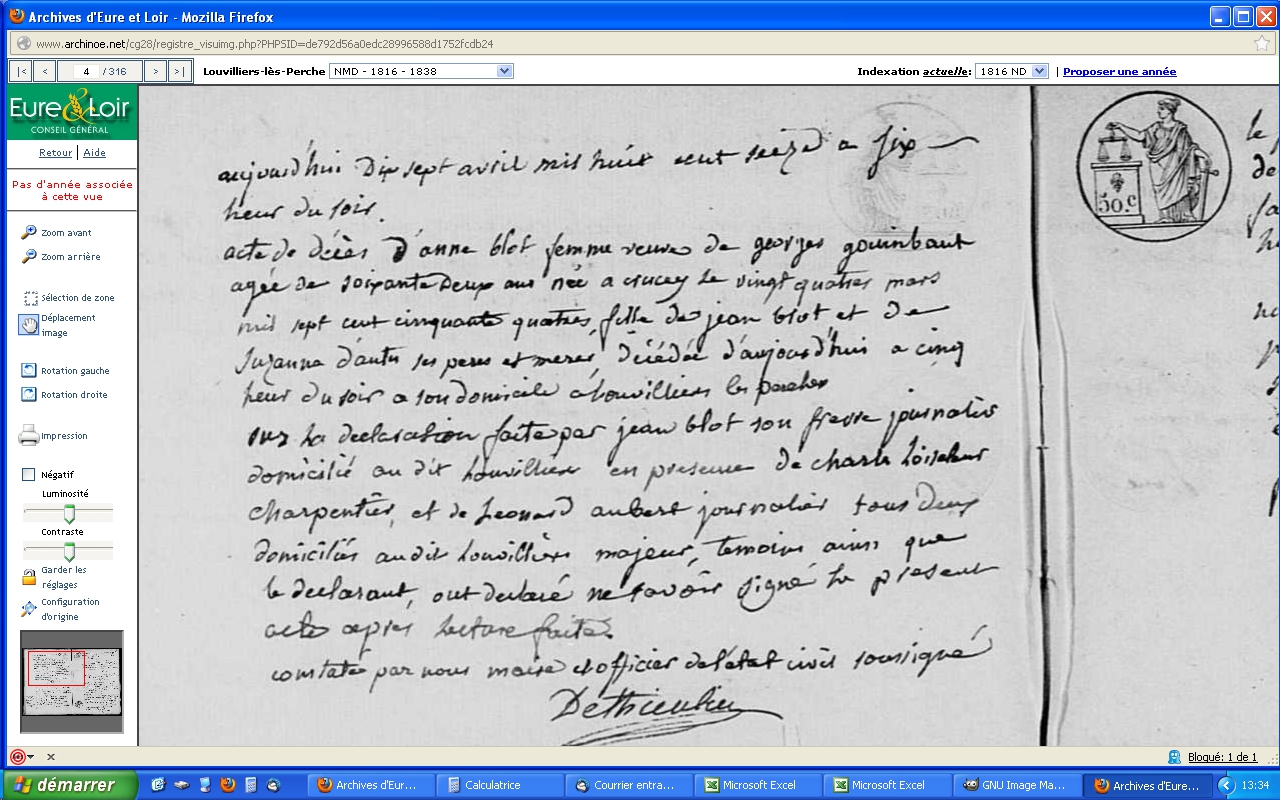 Archives d'Eure et Loir - Mozilla Firefox
www.archinoe.net/cg28/registre_visuimg.php?PHPSID=de792d56a0edc28996588d1752fcdb24
|< < 4 / 316 > >| Louvilliers-lès-Perche NMD - 1816 - 1838 Indexation actuelle: 1816 ND | Proposer une année
Eure & Loir
CONSEIL GÉNÉRAL
Retour | Aide
Pas d'année associée
à cette vue
Zoom avant
Zoom arrière
Sélection de zone
Déplacement
image
Rotation gauche
Rotation droite
Impression
Négatif
Luminosité
Contraste
Garder les
réglages
Configuration
d'origine
aujourd'hui Dix sept avril mil huit cent seize a six
heur du soir.
acte de décès d'anne blot femme veuve de georges gouinbaut
agée de soixante deux ans née a crucey le vingt quatres mars
mil sept cent cinquante quatres, fille de jean blot et de
Suzanna d'autu ses peres et meres, décédée d'aujourd'hui a cinq
heur du soir a son domicile a louvilliers les perches
sur la declaration faite par jean blot son frere journalier
domicilié au dit Louvilliers en presence de charle Loiseleur
charpentier, et de Leonard aubert journalier tous deux
domiciliés audit Louvilliers majeur, temoins ainsi que
le declarant, ont declaré ne savoir signé le present
acte après lecture faite.
constaté par nous maire et officier de l'état civil soussigné
Dethieulin
50.c
le
de
Bloqué: 1 de 1
démarrer
Archives d'Eur...
Calculatrice
Courrier entra...
Microsoft Excel
Microsoft Excel
GNU Image Ma...
Archives d'Eure...
13:34